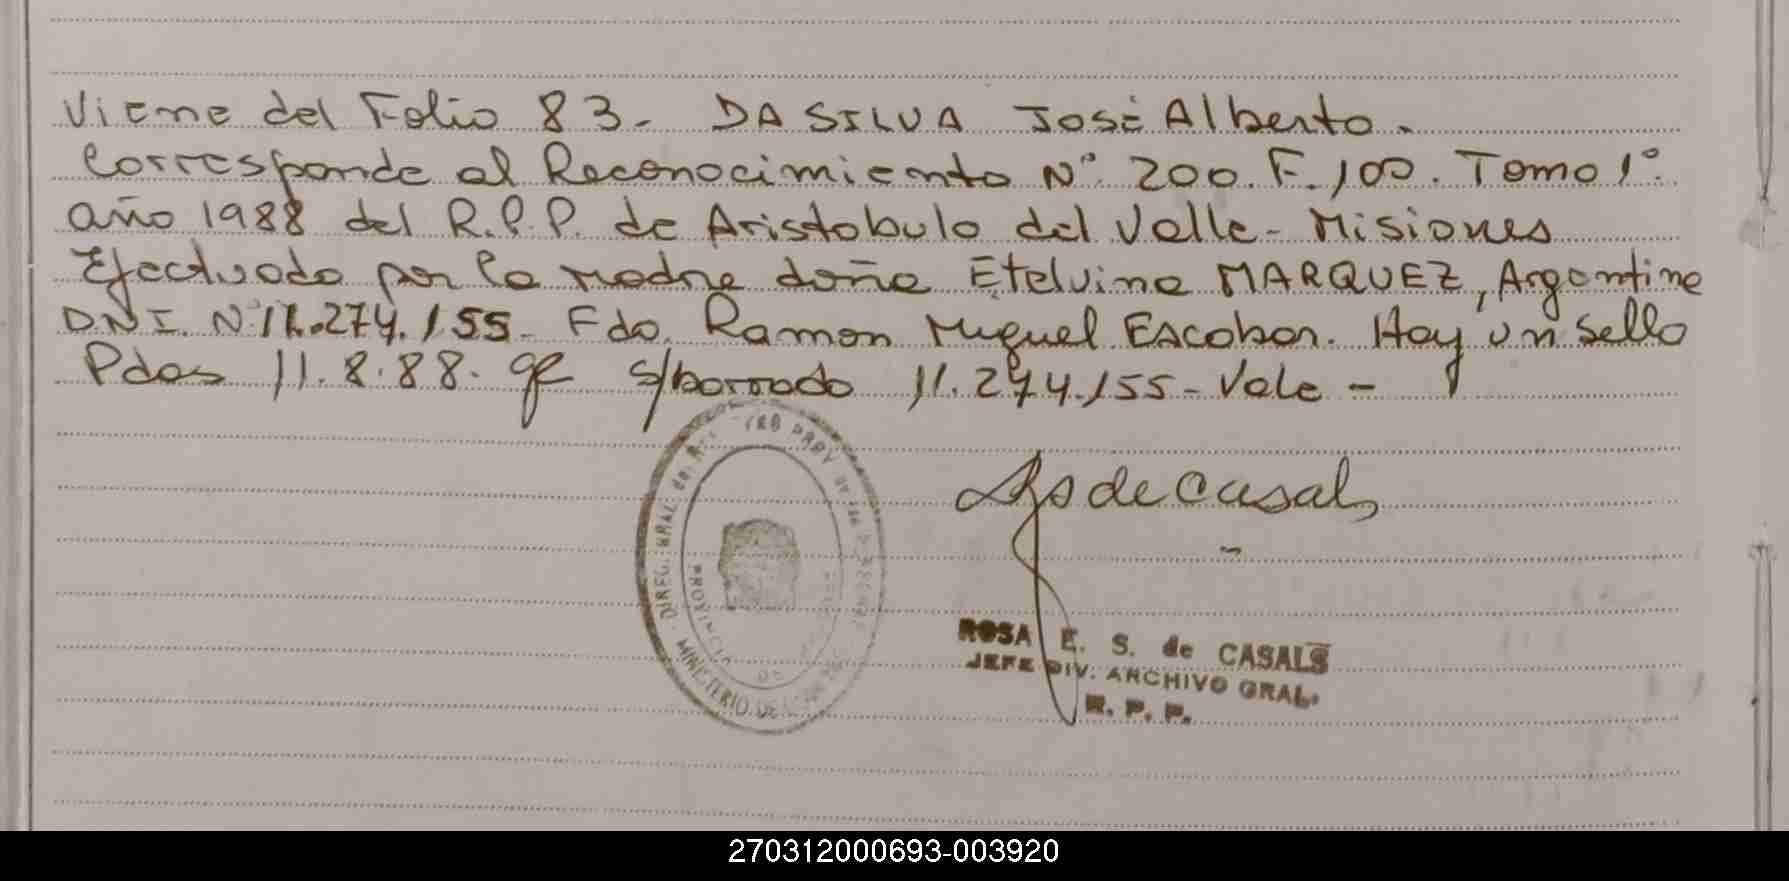 Viene del Folio 83. DA SILVA José Alberto.
Corresponde al Reconocimiento N° 200. F. 100. Tomo 1°
año 1988 del R.P.P. de Aristobulo del Valle - Misiones
Efectuado por la madre doña Etelvina MARQUEZ, Argentina
D.N.I. N° 11.274.155 - Fdo. Ramon Miguel Escobar. Hay un sello
Pdas 11.8.88. s/borrado 11.274.155 - Vale -
de Casals
DIREC. GRAL. del PROV. DE LAS PERSONAS
MINISTERIO DE
PROVINCIA DE
ROSA E. S. de CASALS
JEFE DIV. ARCHIVO GRAL.
R. P. P.
270312000693-003920